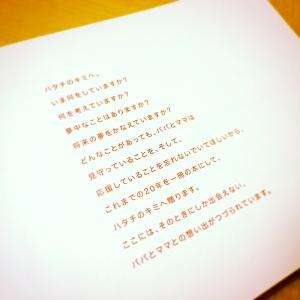 ハタチのキミへ。
いま何をしていますか?
何を考えていますか?
夢中なことはありますか?
将来の夢をかなえていますか?
どんなことがあっても、パパとママは
見守っていることを、そして、
応援していることを忘れないでいてほしいから、
これまでの20年を一冊の本にして、
ハタチのキミへ贈ります。
ここには、そのときにしか出会えない、
パパとママとの想い出がつづられています。